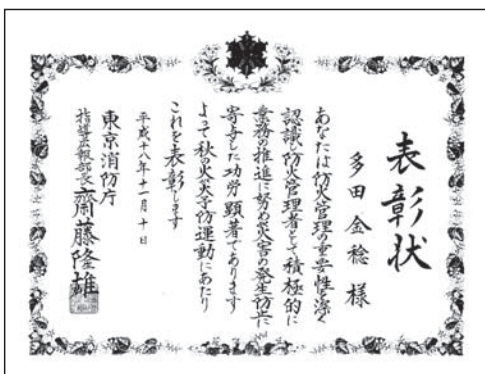 表彰状
多田金稔様
あなたは防火管理の重要性を深く
認識し防火管理者として積極的に
業務の推進に努め災害の発生防止に
寄与した功労顕著であります
よって秋の火災予防運動にあたり
これを表彰します
平成十八年十一月十日
東京消防庁
指導広報部長齋藤隆雄